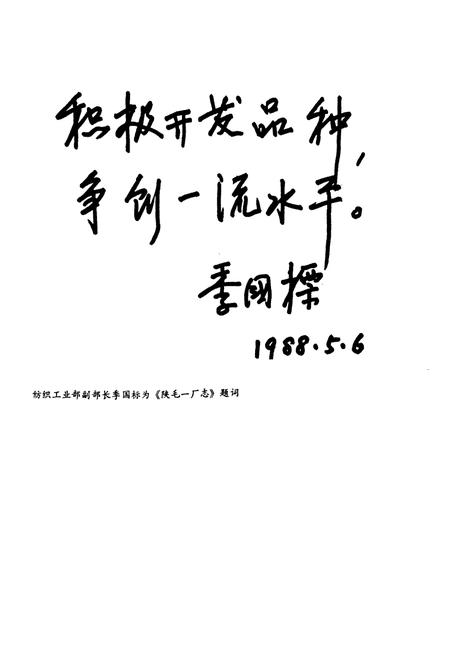 积极开发品种，
争创一流水平。
季国標
1988.5.6
纺织工业部副部长季国标为《陕毛一厂志》题词